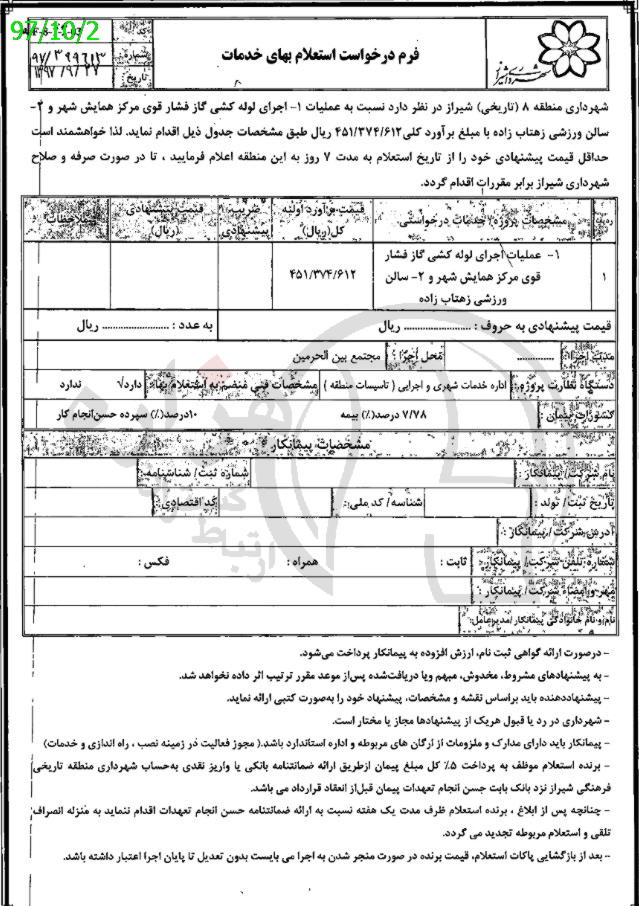 97/10/2
فرم درخواست استعلام بهای خدمات
شهرداری شیراز
شماره: ۹۷/۳۹۹۶۱۳
تاریخ: ۱۳۹۷/۹/۲۷
شهرداری منطقه ۸ (تاریخی) شیراز در نظر دارد نسبت به عملیات ۱- اجرای لوله کشی گاز فشار قوی مرکز همایش شهر و ۲-
سالن ورزشی زهتاب زاده با مبلغ برآورد کلی ۴۵۱/۳۷۴/۶۱۲ ریال طبق مشخصات جدول ذیل اقدام نماید. لذا خواهشمند است
حداقل قیمت پیشنهادی خود را از تاریخ استعلام به مدت ۷ روز به این منطقه اعلام فرمایید ، تا در صورت صرفه و صلاح
شهرداری شیراز برابر مقررات اقدام گردد.
ردیف مشخصات پروژه/ خدمات درخواستی قیمت برآورد اولیه کل(ریال) ضریب پیشنهادی قیمت پیشنهادی (ریال) ملاحظات
۱ ۱- عملیات اجرای لوله کشی گاز فشار
قوی مرکز همایش شهر و ۲- سالن
ورزشی زهتاب زاده
۴۵۱/۳۷۴/۶۱۲
قیمت پیشنهادی به حروف : ........................ ریال به عدد : ........................ ریال
مدت اجرا: ............. محل اجرا : مجتمع بین الحرمین
دستگاه نظارت پروژه: اداره خدمات شهری و اجرایی ( تاسیسات منطقه ) مشخصات فنی منضم به استعلام بها: دارد√ ندارد
کسورات پیمان: ۷/۷۸ درصد(٪) بیمه ۱۰درصد(٪) سپرده حسن‌انجام کار
مشخصات پیمانکار
نام شرکت/ پیمانکار : شماره ثبت/ شناسنامه :
تاریخ ثبت/ تولد : شناسه/ کد ملی : کد اقتصادی :
آدرس شرکت/ پیمانکار :
شماره تلفن شرکت/ پیمانکار : ثابت : همراه : فکس :
مهر و امضاء شرکت/ پیمانکار :
نام و نام خانوادگی پیمانکار/مدیرعامل:
- درصورت ارائه گواهی ثبت نام، ارزش افزوده به پیمانکار پرداخت می‌شود.
- به پیشنهادهای مشروط، مخدوش، مبهم ویا دریافت‌شده پس‌از موعد مقرر ترتیب اثر داده نخواهد شد.
- پیشنهاددهنده باید براساس نقشه و مشخصات، پیشنهاد خود را به‌صورت کتبی ارائه نماید.
- شهرداری در رد یا قبول هریک از پیشنهادها مجاز یا مختار است.
- پیمانکار باید دارای مدارک و ملزومات از ارگان های مربوطه و اداره استاندارد باشد.( مجوز فعالیت در زمینه نصب ، راه اندازی و خدمات)
- برنده استعلام موظف به پرداخت ۵٪ کل مبلغ پیمان ازطریق ارائه ضمانتنامه بانکی یا واریز نقدی به‌حساب شهرداری منطقه تاریخی
فرهنگی شیراز نزد بانک بابت حسن انجام تعهدات پیمان قبل‌از انعقاد قرارداد می باشد.
- چنانچه پس از ابلاغ ، برنده استعلام ظرف مدت یک هفته نسبت به ارائه ضمانتنامه حسن انجام تعهدات اقدام ننماید به منزله انصراف
تلقی و استعلام مربوطه تجدید می گردد.
- بعد از بازگشایی پاکات استعلام، قیمت برنده در صورت منجر شدن به اجرا می بایست بدون تعدیل تا پایان اجرا اعتبار داشته باشد.